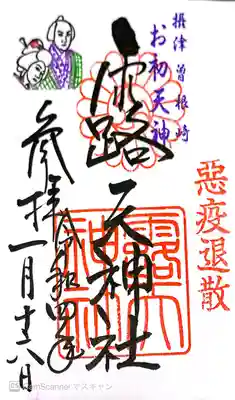 摂津曽根崎
お初天神
惡疫退散
露天神社
露天神社
令和四年
参拝 一月十六日
CamScannerでスキャン